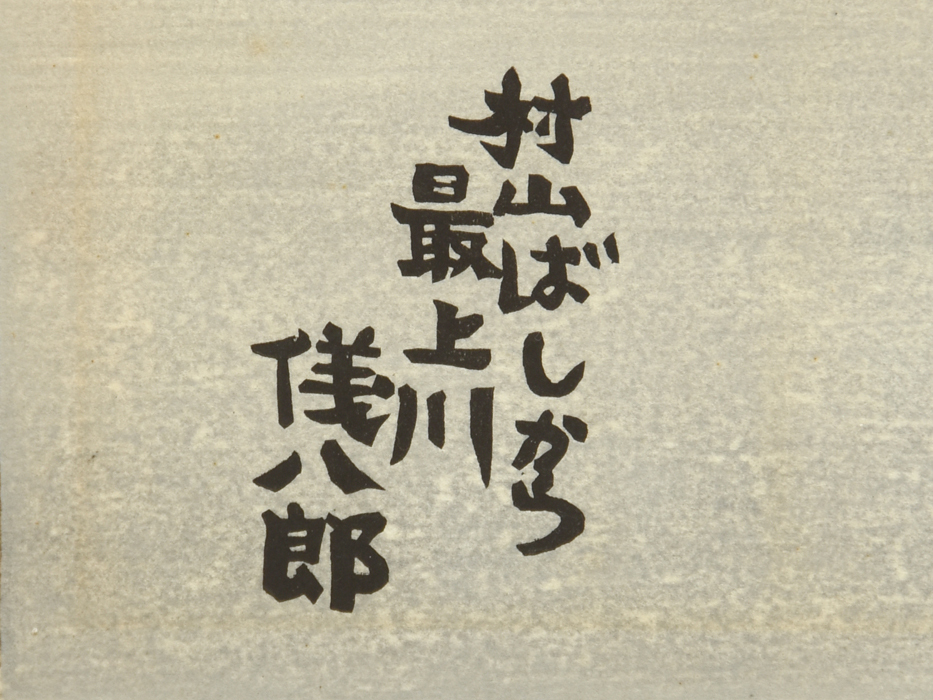 村山ばしから
最上川
儀八郎